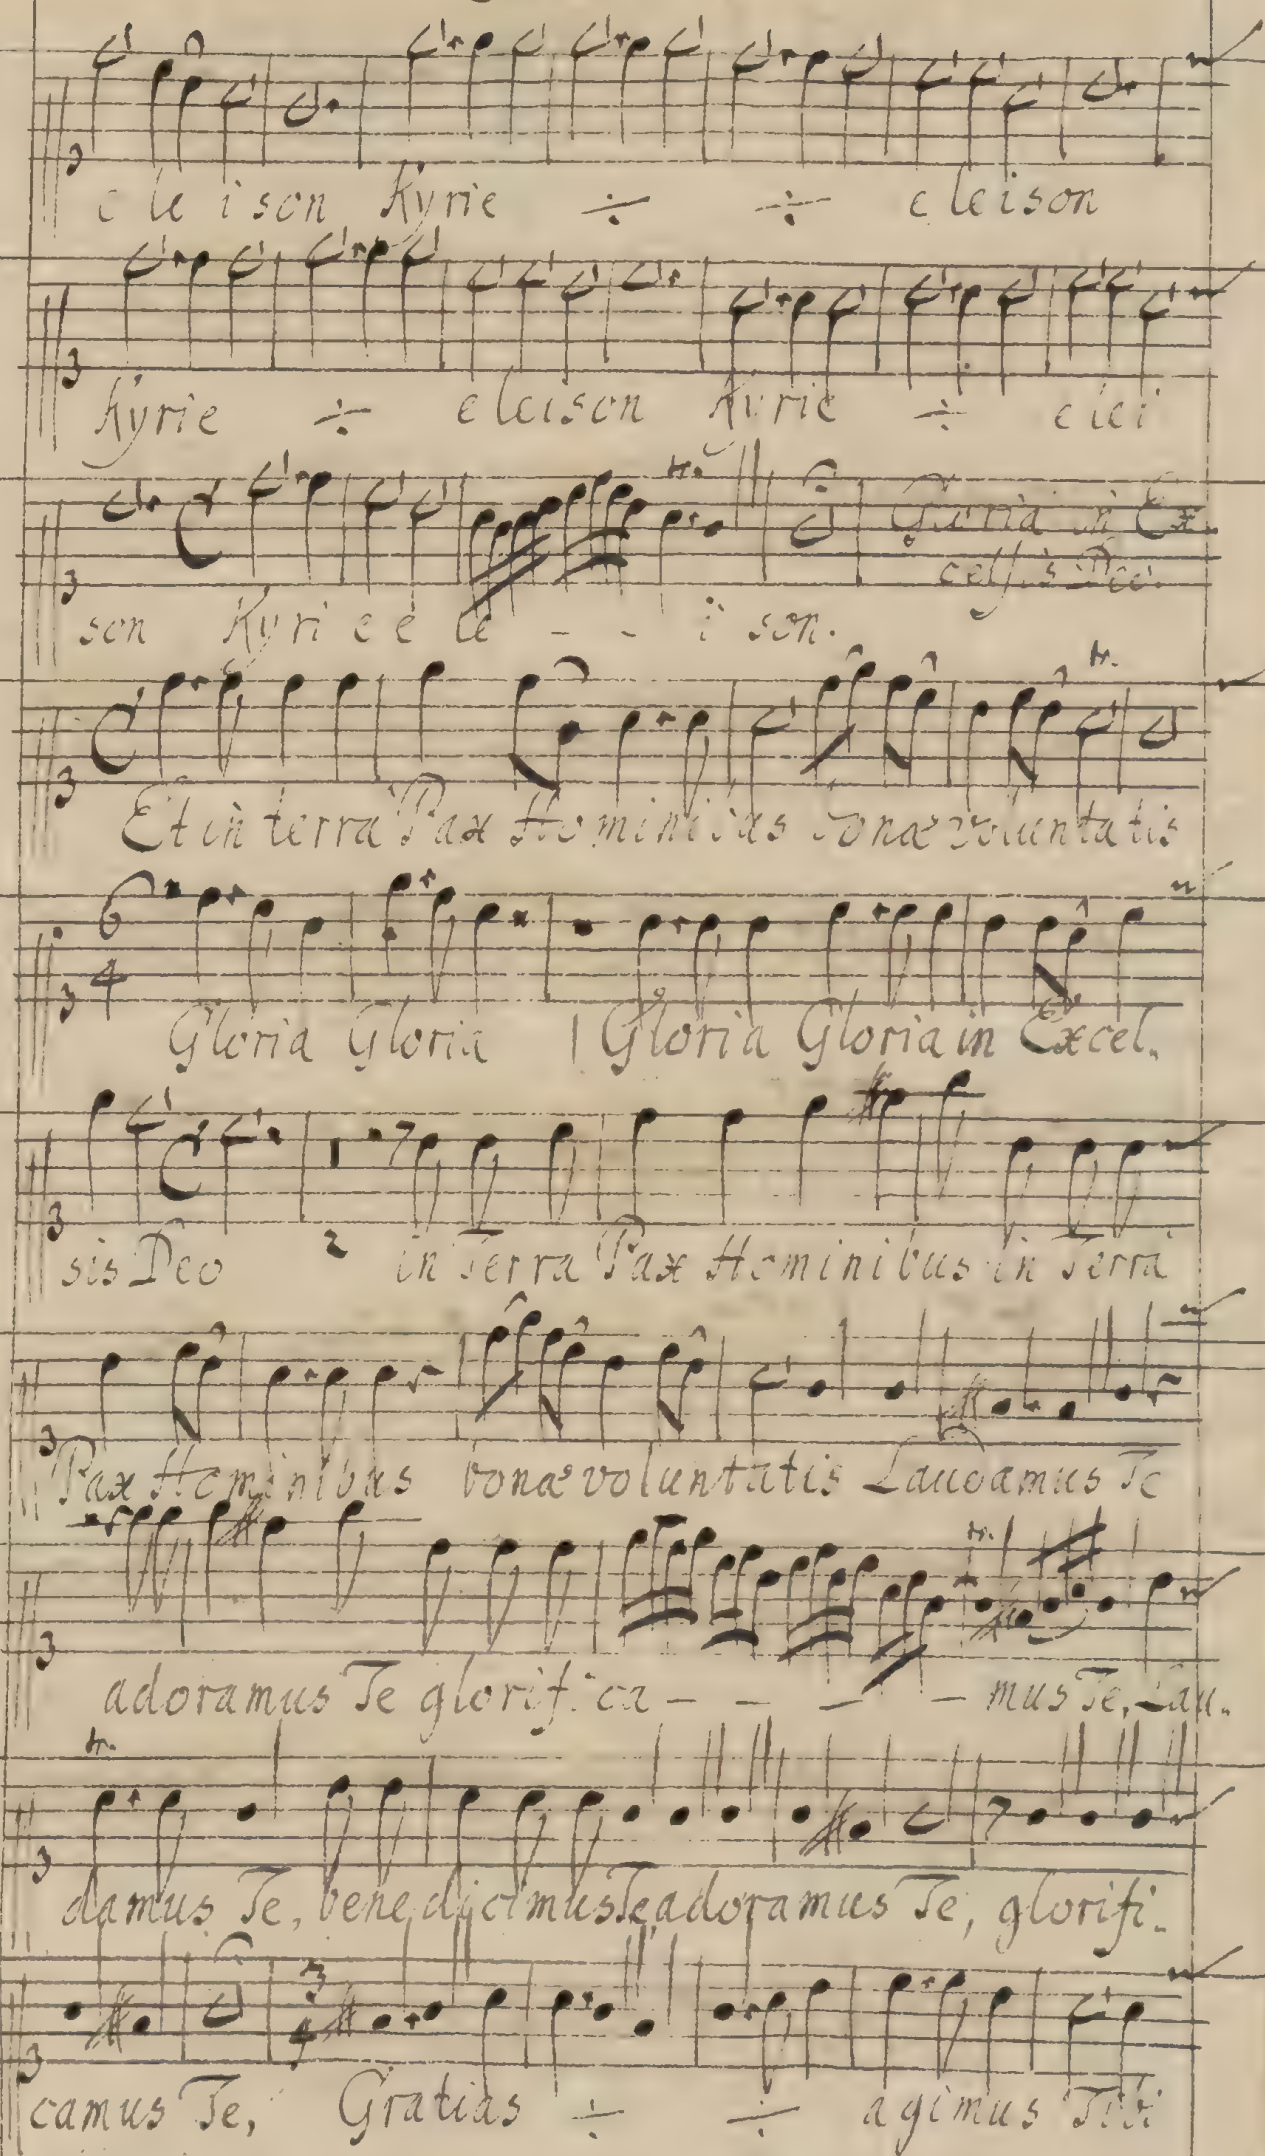 e le i son Kyrie ÷ ÷ eleison
Kyrie ÷ eleison Kyrie ÷ elei
Gloria in Ex.
celsis Deo.
son Kyri e e le - - i son.
tr.
Et in terra Pax Hominibus bonæ voluntatis
6
4
Gloria Gloria | Gloria Gloria in Excel.
sis Deo 2 in Terra Pax Hominibus in Terra
Pax Hominibus bonæ voluntatis Laudamus Te
tr.
adoramus Te glorifica - - - - mus Te, Lau.
tr.
damus Te, benedicimus Te, adoramus Te, glorifi.
3
4
camus Te, Gratias ÷ ÷ agimus Tibi